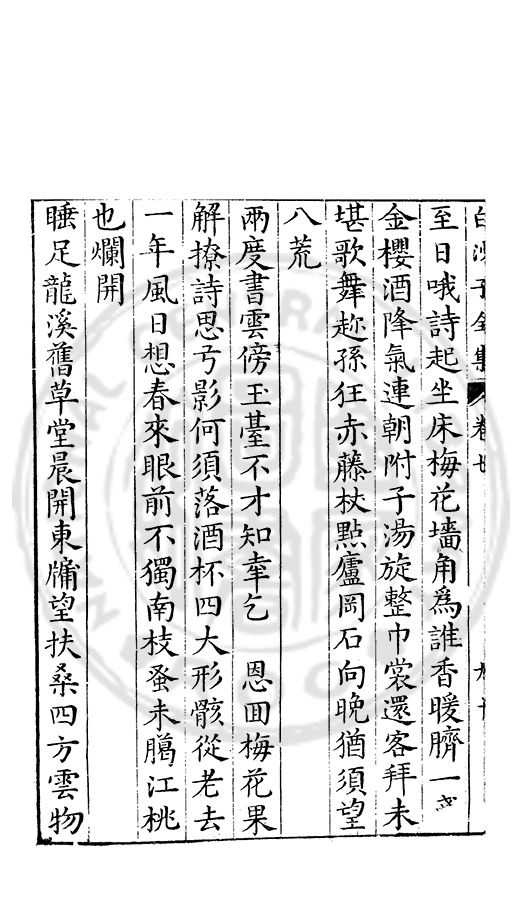 白沙子全集 卷
至日哦詩起坐床梅花墻角為誰香暖臍一
金櫻酒降氣連朝附子湯旋整巾裳還客拜未
堪歌舞趂孫狂赤藤杖點廬岡石向晚猶須望
八荒
兩度書雲傍玉臺不才知幸乞 恩囬梅花果
解撩詩思弓影何須落酒杯四大形骸從老去
一年風日想春來眼前不獨南枝蚤未臈江桃
也爛開
睡足龍溪舊草堂晨開東牖望扶桑四方雲物